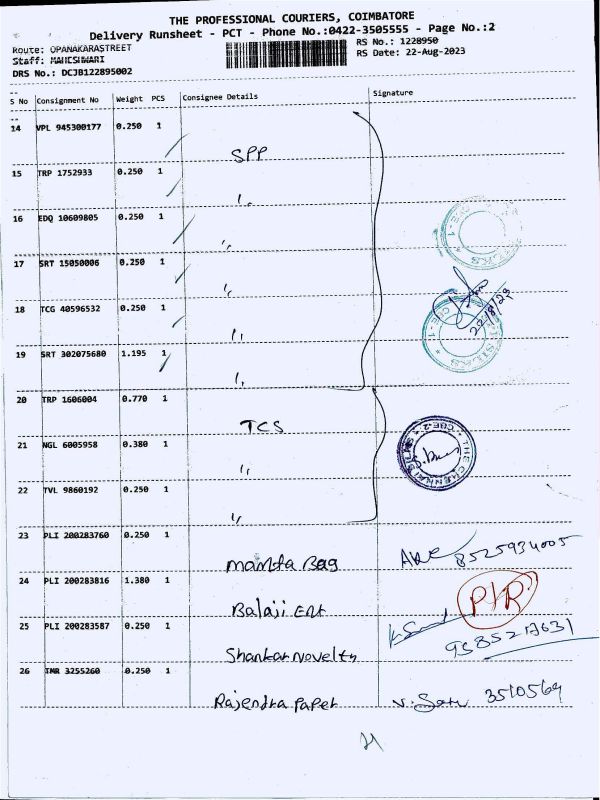 THE PROFESSIONAL COURIERS, COIMBATORE
Delivery Runsheet - PCT - Phone No.:0422-3505555 - Page No.:2
Route: OPANAKARASTREET
RS No.: 1228950
Staff: MAHESHWARI
RS Date: 22-Aug-2023
DRS No.: DCJB122895002
S No Consignment No Weight PCS Consignee Details Signature
14 VPL 945300177 0.250 1 SPP
15 TRP 1752933 0.250 1 ,,
16 EDQ 10609805 0.250 1 ,,
17 SRT 15050006 0.250 1 ,,
18 TCG 40596532 0.250 1 ,,
19 SRT 302075680 1.195 1 ,,
20 TRP 1606004 0.770 1 TCS
21 NGL 6005958 0.380 1 ,,
22 TVL 9860192 0.250 1 ,,
23 PLI 200283760 0.250 1 Mamta Bag 8525934005
24 PLI 200283816 1.380 1 Balaji Ent P/R
25 PLI 200283587 0.250 1 Shankar Novelty
26 TMR 3255260 0.250 1 Rajendra Paper 3510569